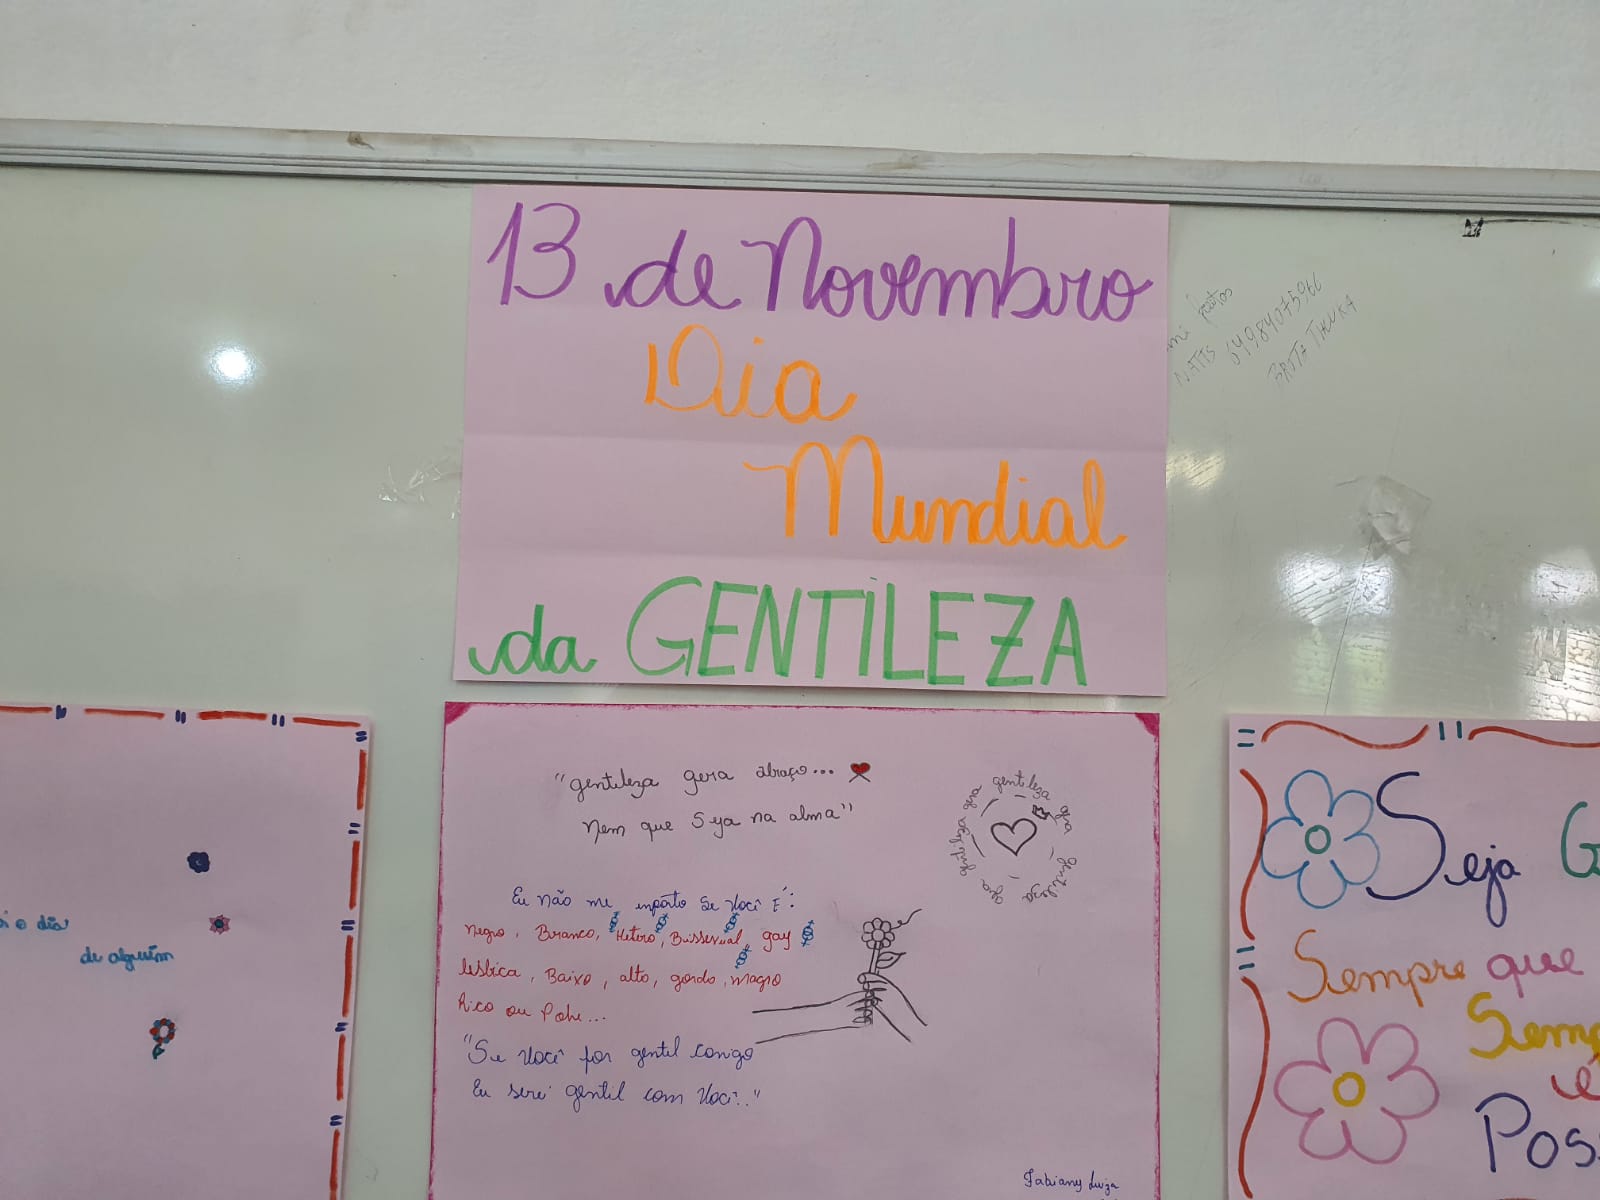 13 de Novembro
Dia
Mundial
da GENTILEZA
NATTS 64984075966
BRUTA THUKA
"gentileza gera abraço...
Nem que Seja na alma"
gentileza gera gentileza gera gentileza gera
Eu não me inporto Se Você É:
Negro, Branco, Hetero, Buissexual, gay
lésbica, Baixo, alto, gordo, magro
Rico ou Pobre...
"Se Você for gentil comigo
Eu serei gentil com Você.."
Fabiany Luiza
o dia
de alguém
Seja G
Sempre que
Semp
é
Poss